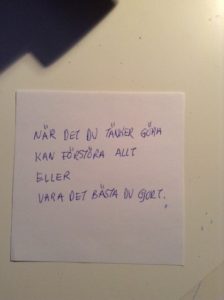 NÄR DET DU TÄNKER GÖRA
KAN FÖRSTÖRA ALLT
ELLER
VARA DET BÄSTA DU GJORT.